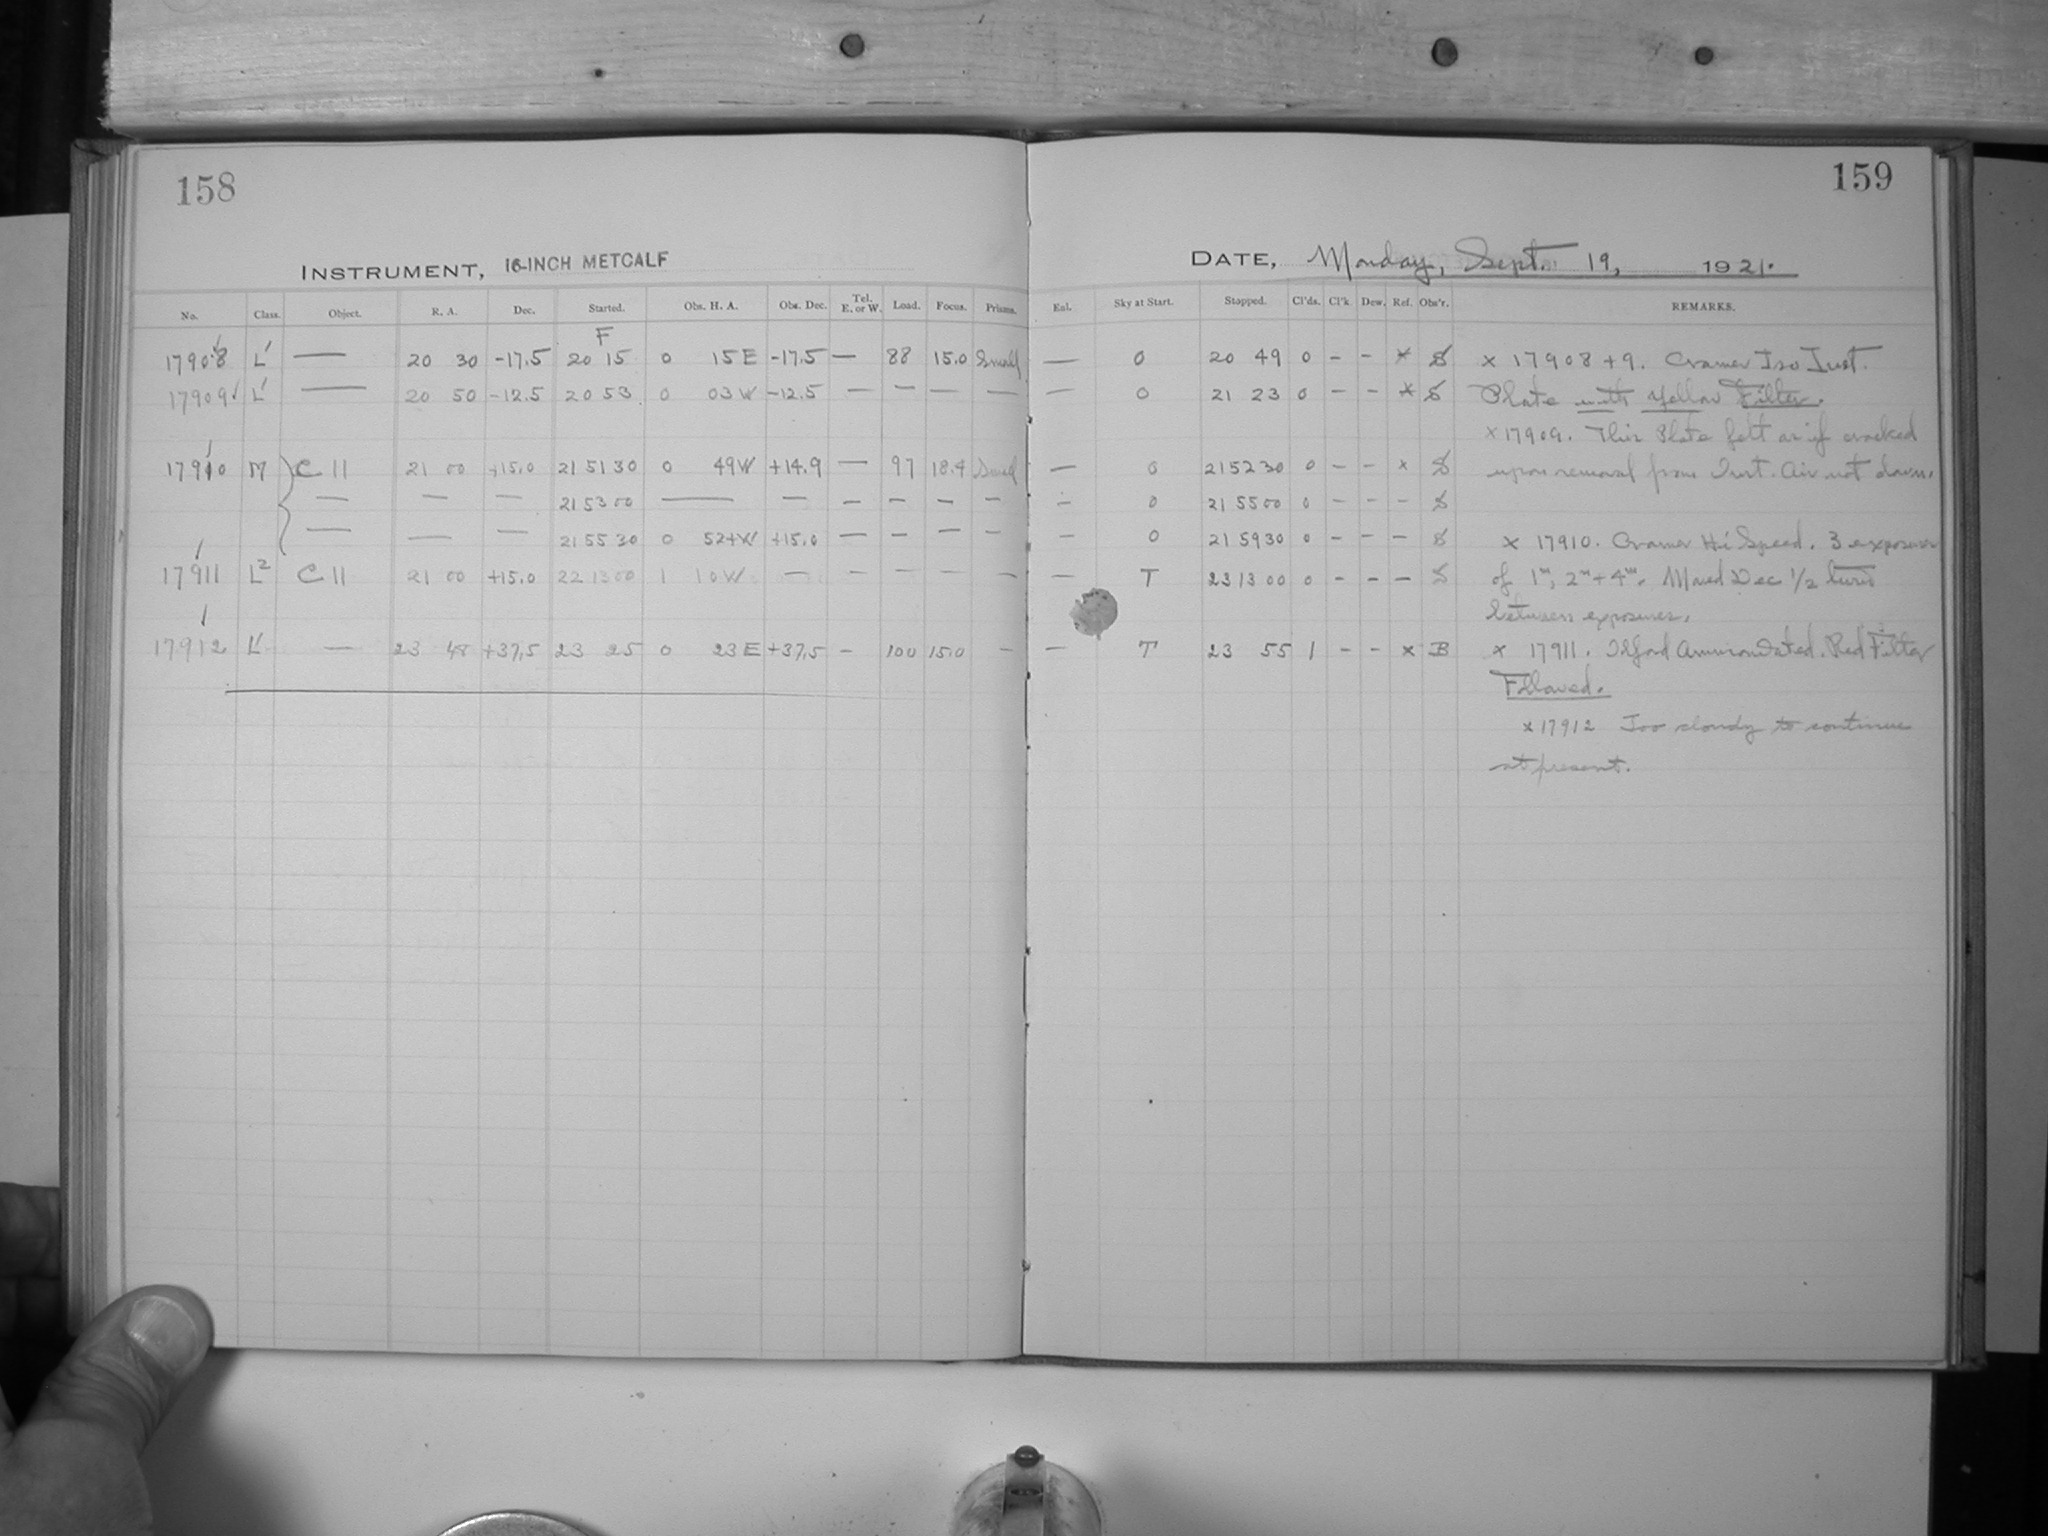 158
159
INSTRUMENT, 16-INCH METCALF
DATE, Monday, Sept. 19, 1921.
No. Class. Object. R. A. Dec. Started. Obs. H. A. Obs. Dec. Tel. E. or W. Load. Focus. Prisms. Enl. Sky at Start. Stopped. Cl'ds. Cl'k. Dew. Ref. Obs'r. REMARKS.
F
17908 L' — 20 30 -17.5 20 15 0 15 E -17.5 — 88 15.0 Small — 0 20 49 0 - - x S x 17908 + 9. Cramer Iso Inst.
17909 L' — 20 50 -12.5 20 53 0 03 W -12.5 — — — — — 0 21 23 0 - - x S Plate with Yellow Filter.
x 17909. This Plate felt as if cracked
17910 M C 11 21 00 +15.0 21 51 30 0 49 W +14.9 — 97 18.4 Small — 0 21 52 30 0 - - x S upon removal from Inst. Air not down.
— — — 21 53 00 — — — — — — — 0 21 55 00 0 - - - S
— — — 21 55 30 0 52+W +15.0 — — — — — 0 21 59 30 0 - - - S x 17910. Cramer Hi Speed. 3 exposures
17911 L2 C 11 21 00 +15.0 22 13 00 1 10 W — — — — — — T 23 13 00 0 - - - S of 1m, 2m + 4m. Moved Dec 1/2 turn
between exposures.
17912 L' — 23 48 +37.5 23 25 0 23 E +37.5 - 100 15.0 — — T 23 55 1 - - x B x 17911. Ilford Ammoniated. Red Filter
Followed.
x 17912 Too cloudy to continue
at present.